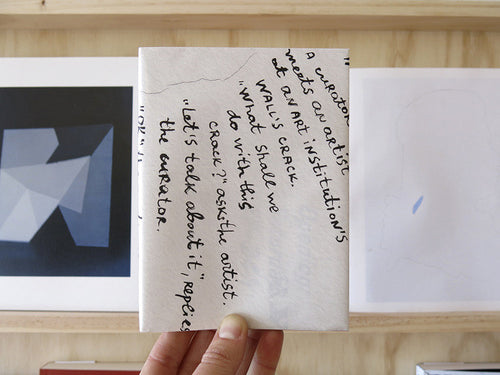 A curator
meets an artist
at an ART institution's
WALL'S CRACK.
"What shall we
do with this
CRACK?" asks the artist.
"Let's talk about it", replies
the curator.
"OK"